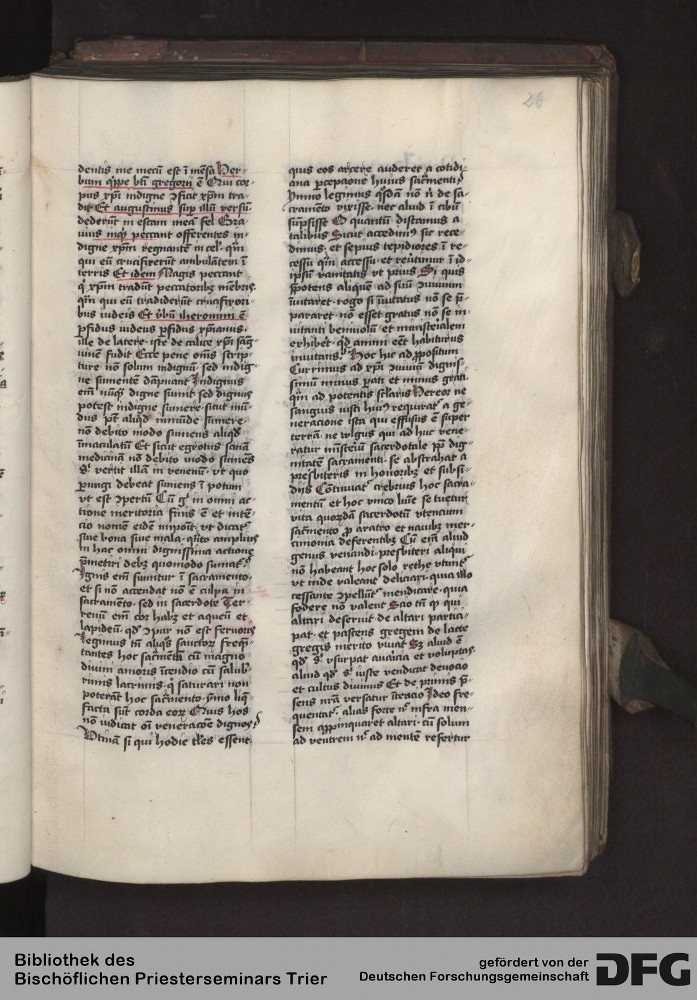 26
dentis me mecū est ī mēsa Ver-
bum q̄ppe bti gregorii ē Qui cor-
pus xp̄i indigne ꝯficit xp̄m tra-
dit Et augustinus sup̄ illū versū
dederūt in escam meā fel Gra-
uius inq̄t peccant offerentes in-
digne xp̄m regnantē in cel' q̄m
qui eū crucifixerūt ambulātem ī
terris Et idem Magis peccant
q̄ xp̄m tradūt peccatoribꝫ mēbris
q̄m qui eū tradiderūt crucifixori-
bus iudeis Et v̄bū iheronimi ē
perfidus iudeus perfidus xp̄ianus
ille de latere iste de calice xp̄i sāg-
uinē fudit Ecce pene om̄s scrip-
ture nō solum indignū sed indig-
ne sumentē dāpnant Indignus
em̄ nūq̄ digne sumit sed dignus
potest indigne sumere sicut mū-
dus pt̄ aliqd̄ immūde sumere
nō debito modo sumens aliqd̄
īmaculatū Et sicut egrotus sanā
medicinā nō debito modo sumēs
vertit illā in venenū vt quo
perungi debeat sumens ī potum
vt est ꝯpertū Cū g' in omni ac-
tione meritoria finis ē et intē-
cio nomē eidē imponit vt dicat'
siue bona siue mala q̄nto amplius
in hac omni dignissima actione
p̄meditari debꝫ quomodo sumat'
Ignis em̄ sumitur ī sacramento
et si nō accendat nō ē culpa in
sacramēto sed in sacerdote Ter-
renū em̄ cor habꝫ et aqueū et
lapideū qd̄ ꝯpar nō est feruoris
legimus tn̄ aliq̄s sanctorꝫ freq̄n-
tantes hoc sacr̄mētū cū magno
diuini amoris īcendio cū salub-
rimis lacrimis q̄ saturari non
poterāt hoc sacr̄mento ymo liq̄-
facta sūt corda eorꝫ Quis hos
nō iudicat oī veneracōe dignos
Vtinā si qui hodie tl̄es essent
quis eos arcere auderet a cotidi-
ana ꝑcepcione huius sacr̄menti
ymmo legimus q̄sdā nō n̄ de sa-
cramento vixisse nec aliud ī cibū
sūpsisse O quantū distamus a
talibus Sicut accedim9 sic rece-
dimus et sepius tepidiores ī re-
cessu q̄m accessu et reūtimur ī id-
ipsū vanitatis vt prius Si quis
ꝑpotens aliquē ad suū ꝯuiuium
īuitaret rogo si īuitatus nō se p̄-
pararet nō esset gratus nō se in-
uitanti beniuolū et ministerialem
exhibet qd̄ animi eēt habiturus
inuitans Hoc hic ad ꝓpositum
Currimus ad xp̄i ꝯuiuiū dignis-
simū minus pati et minus grati
q̄m ad potentis sclaris Vereor ne
sanguis iusti huiꝰ requirat' a ge-
neracione ista qui effusus ē super
terrā ne vilgus qui ad huc vene-
ratur misteriū sacerdotale ꝓp̄ dig-
nitatē sacramenti se abstrahat a
presbiteris in honoribꝫ et subsi-
diis Continuat' crebrius hoc sacra-
mentū et hoc vnico lūie se tuetur
vita quorūdā sacerdotū vtencium
sacr̄mento ꝓ aratro et nauibꝫ mer-
cimonia deferentibꝫ Cū em̄ aliud
genus venandi presbiteri aliqui
nō habeant hoc solo rethe vtunt'
vt inde valeant delicari quia illo
cessante ꝯpellūt' mendicare quia
fodere nō valent Scio tn̄ q̄ qui
altari deseruit de altari partici-
pat et pastens gregem de lacte
gregis merito viuat Sꝫ aliud ē
qd̄ vsurpat auaricia et voluptas
aliud qd̄ iuste vendicat deuocio
et cultus diuinus Et de primis p̄-
sens nr̄a versatur īteracio Ideo fre-
quentat' alias forte n̄ infra men-
sem apꝓpinquaret altari cū solum
ad ventrem n̄ ad mentē refertur
Bibliothek des
Bischöflichen Priesterseminars Trier
gefördert von der
Deutschen Forschungsgemeinschaft
DFG